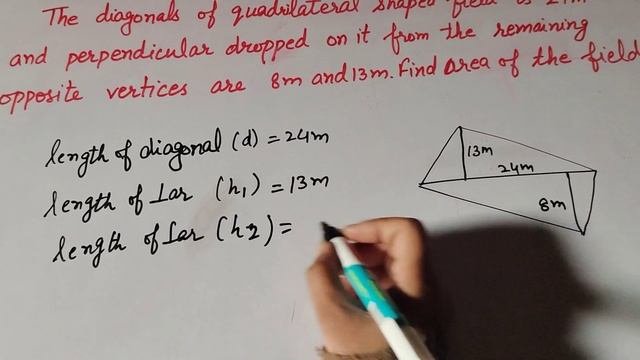 The diagonals of quadrilateral shaped field is 24m
and perpendicular dropped on it from the remaining
opposite vertices are 8m and 13m. Find area of the field
length of diagonal (d) = 24m
length of Lar (h1) = 13m
length of Lar (h2) =
13m
24m
8m